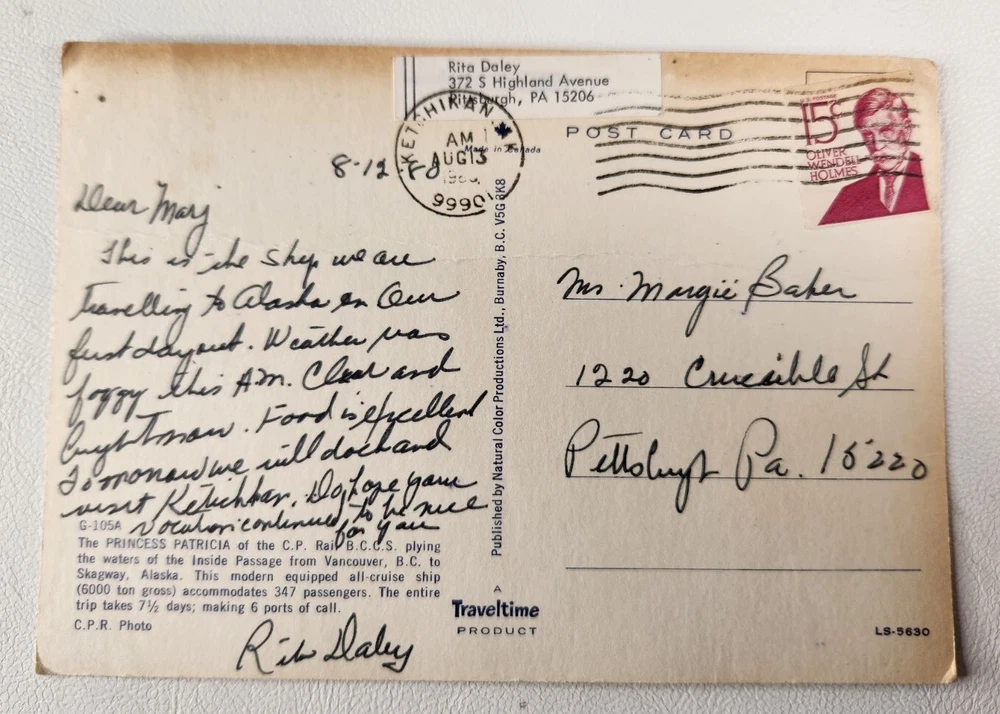 Rita Daley
372 S Highland Avenue
Pittsburgh, PA 15206
KETCHIKAN
AM
AUG 13
1980
99901
POST CARD
Made in Canada
U.S. POSTAGE
15¢
OLIVER
WENDELL
HOLMES
8-12 80
Dear Marj
This is the ship we are
travelling to Alaska on Our
first day out. Weather was
foggy this A.M. Clear and
bright now. Food is excellent
Tomorrow we will dock and
visit Ketchikan. Do hope your
vacation continued to be nice
for you
G-105A
The PRINCESS PATRICIA of the C.P. Rail B.C.C.S. plying
the waters of the Inside Passage from Vancouver, B.C. to
Skagway, Alaska. This modern equipped all-cruise ship
(6000 ton gross) accommodates 347 passengers. The entire
trip takes 7½ days; making 6 ports of call.
C.P.R. Photo
Rita Daley
Published by Natural Color Productions Ltd., Burnaby, B.C. V5G 3K8
A
Traveltime
PRODUCT
Ms. Margie Baker
1220 Crucible St
Pittsburgh Pa. 15220
LS-5630